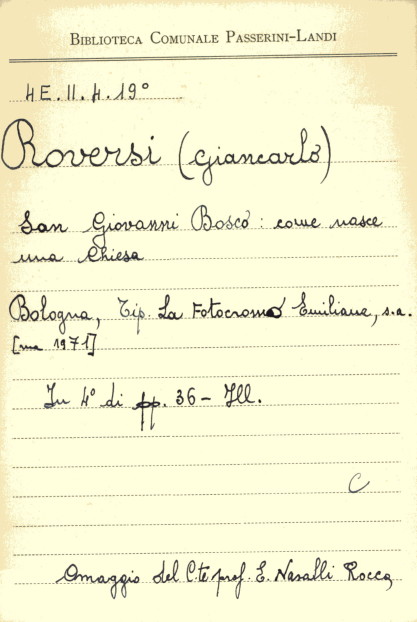 BIBLIOTECA COMUNALE PASSERINI-LANDI
4E.II.4.19°
Roversi (Giancarlo)
San Giovanni Bosco: come nasce
una Chiesa
Bologna, Tip. La Fotocromo Emiliana, s.a.
[ma 1971]
In 4° di pp. 36 - Ill.
C
Omaggio del C.te prof. E. Nasalli Rocca